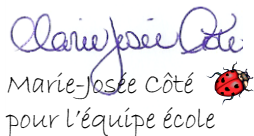 Marie-Josée Côté
Marie-Josée Côté
pour l'équipe école